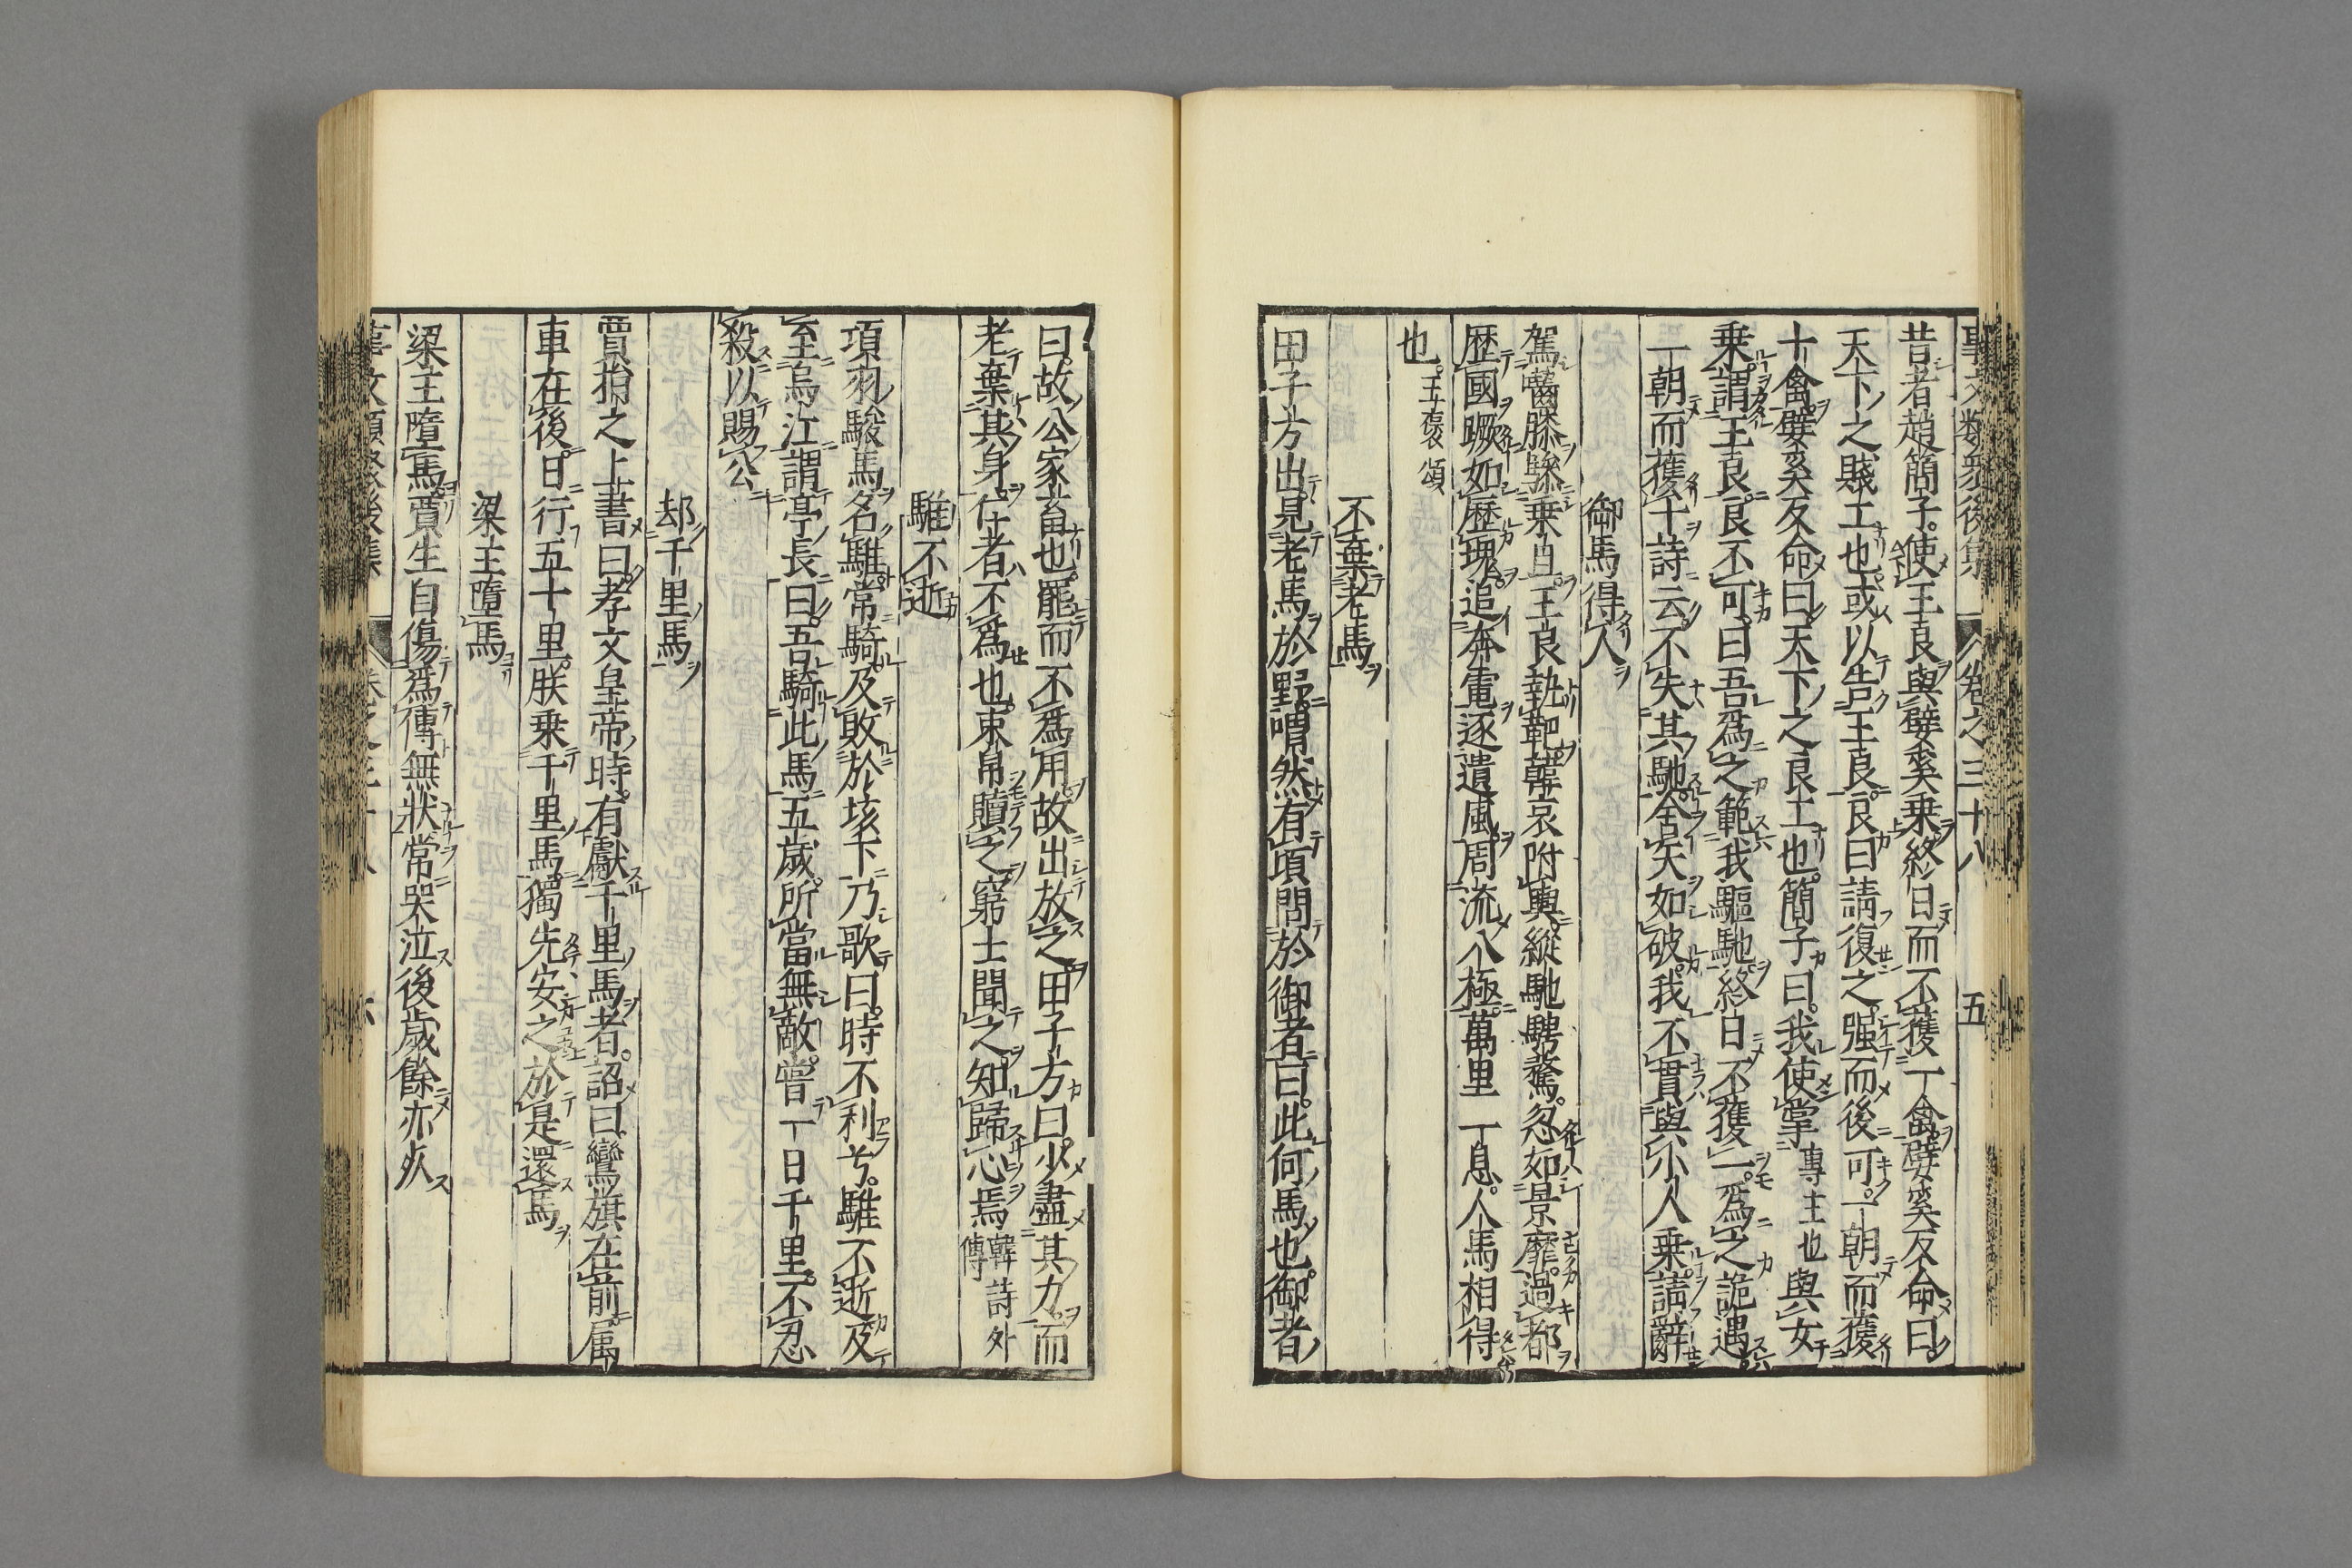 事文類聚後集 卷之三十八 五
昔者趙簡子。使王良與嬖奚乘終日而不獲一禽。嬖奚反命曰
天下之賤工也。或以告王良。良曰請復之。強而後可。一朝而獲
十禽。嬖奚反命曰。天下之良工也。簡子曰。我使掌專主也與女
乗。謂王良。良不可。曰吾爲之範我驅馳。終日不獲一。爲之詭遇。
一朝而獲十詩云。不失其馳。舍矢如破。我不貫與小人乗。請辭
御馬得人
駕囓膝驂乗旦。王良執靶。韓哀附輿。縱馳騁騖。忽如景靡。過都
歷國蹶如歷塊。追奔電逐遺風。周流八極。萬里一息。人馬相得
也。王褒頌
不棄老馬
田子方出見老馬於野。喟然有頃問於御者曰。此何馬也。御者
曰。故公家畜也。罷而不爲用。故出放之田子方曰。少盡其力。而
老棄其身。仕者不爲也。束帛贖之。窮士聞之。知歸心焉韓詩外傳
騅不逝
項羽駿馬名騅。常騎。及敗於垓下乃歌曰。時不利兮。騅不逝及
至烏江。謂亭長曰。吾騎此馬五歲。所當無敵。嘗一日千里。不忍
殺以賜公
却千里馬
賈捐之上書曰。孝文皇帝時。有獻千里馬者。詔曰。鸞旗在前。属
車在後。日行五十里。朕乘千里馬。獨先安之。於是還馬
梁主墮馬
梁王墮馬。賈生自傷爲傅無狀。常哭泣後歲餘亦死